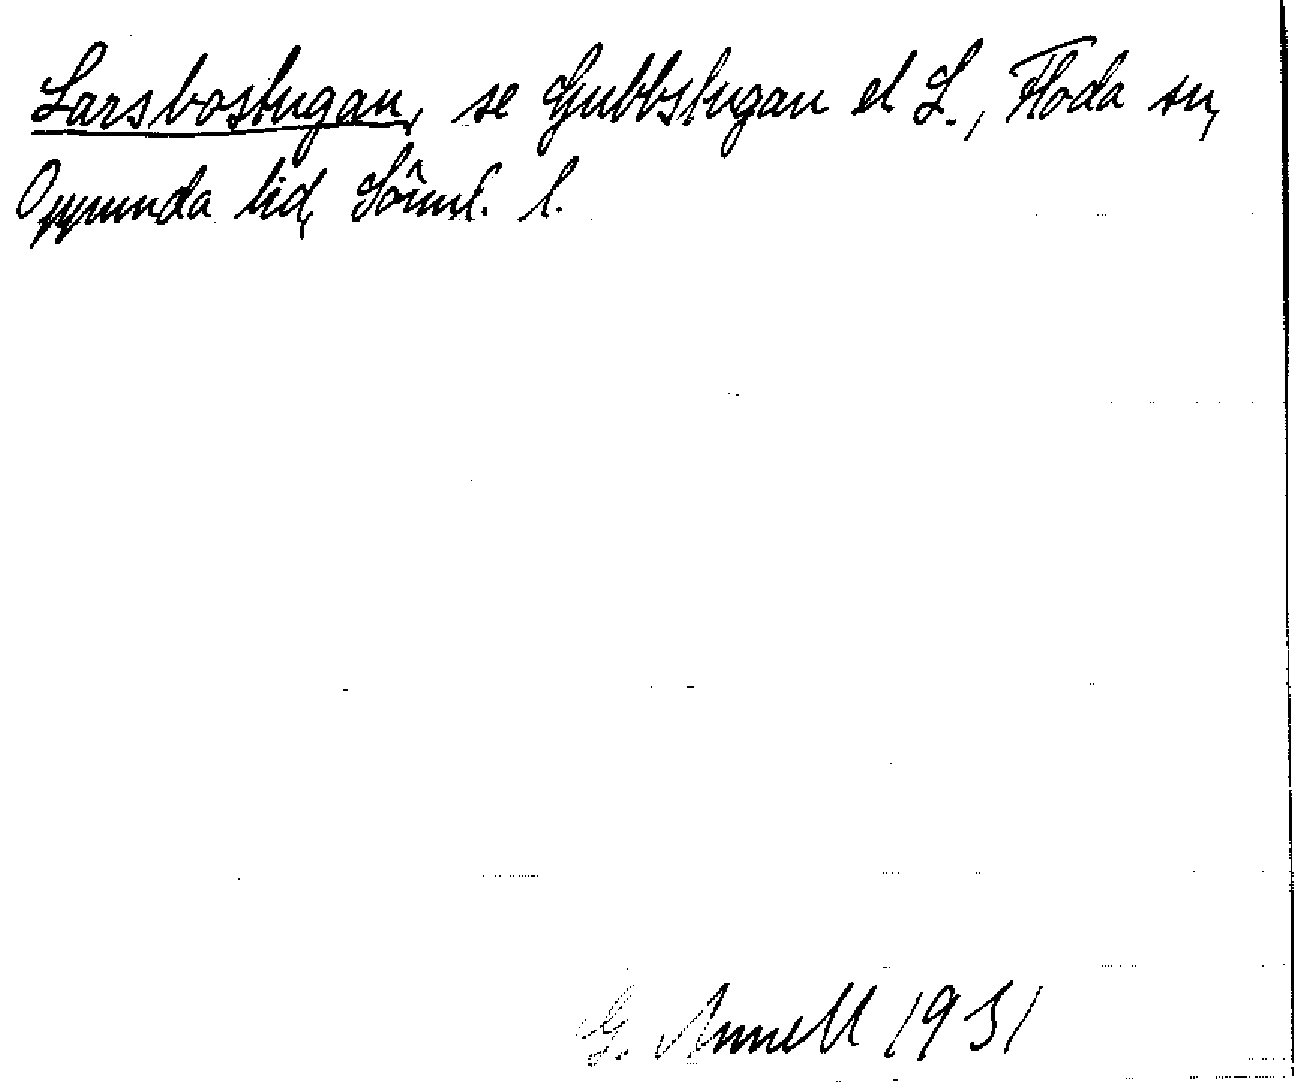 Larsbostugan, se Gubbstugan el L., Floda sn,
Oppunda hd, Söml. l.
G. Annell 1931